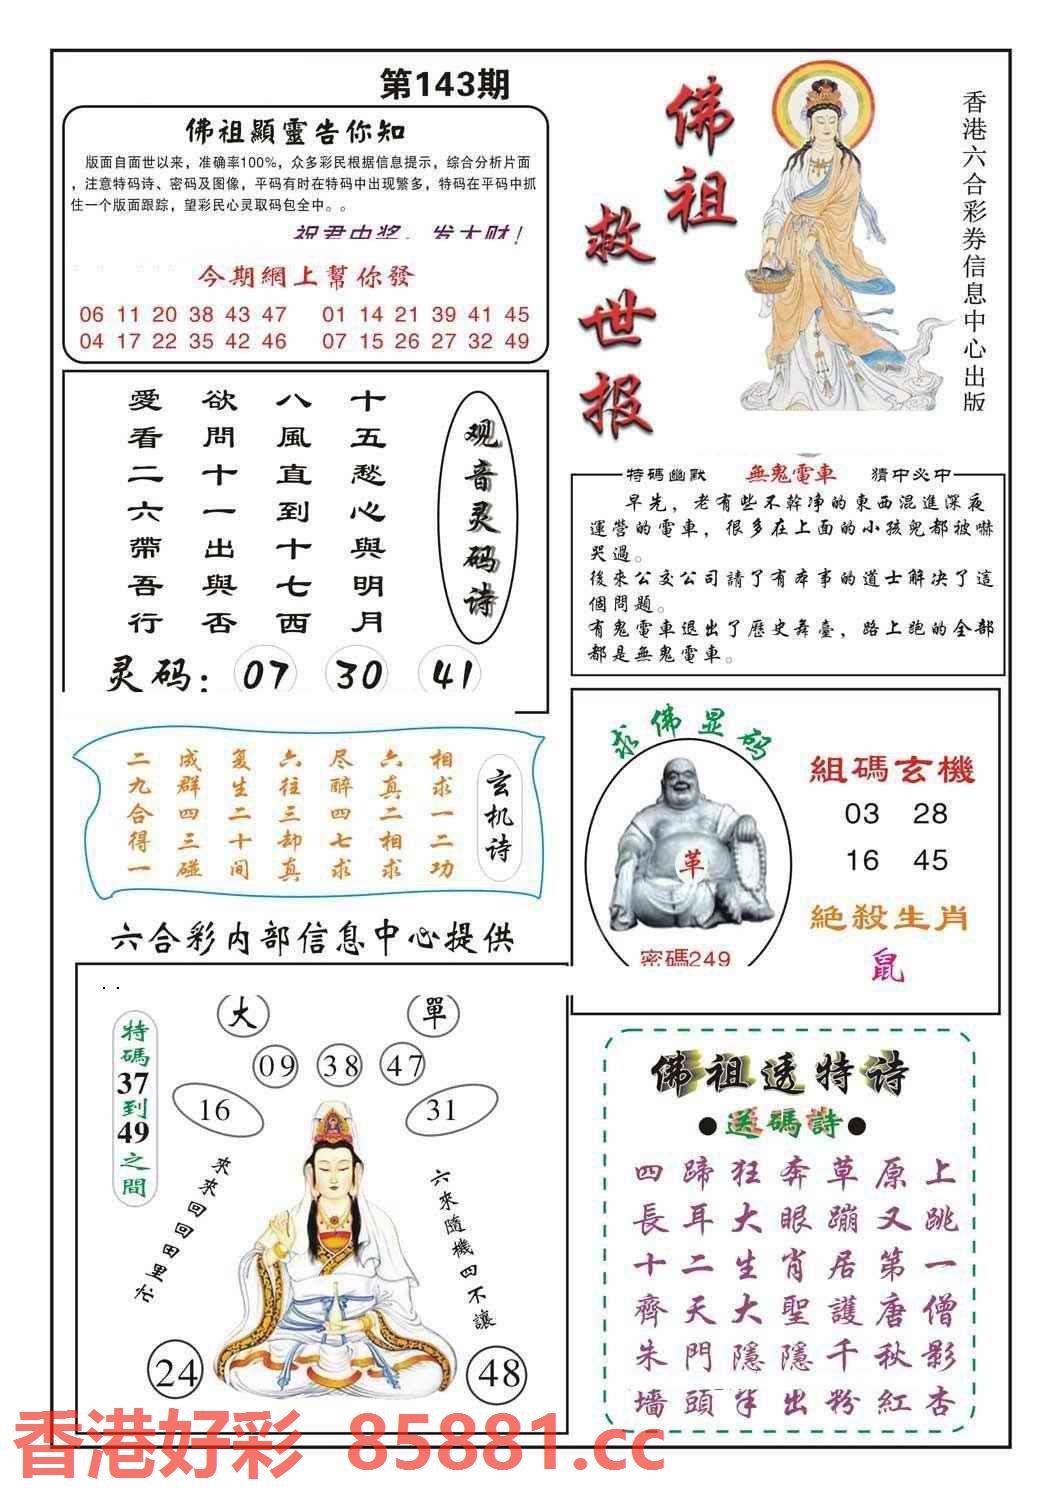 第143期
佛祖顯靈告你知
版面自面世以来，准确率100%，众多彩民根据信息提示，综合分析片面
，注意特码诗、密码及图像，平码有时在特码中出现繁多，特码在平码中抓
住一个版面跟踪，望彩民心灵取码包全中。。
祝君中奖，发大财！
今期網上幫你發
06 11 20 38 43 47 01 14 21 39 41 45
04 17 22 35 42 46 07 15 26 27 32 49
佛祖
救世报
香港六合彩券信息中心出版
观音灵码诗
十五愁心與明月
八風直到十七西
欲問十一出與否
愛看二六帶吾行
灵码：07 30 41
特碼幽默 無鬼電車 猜中必中
早先，老有些不幹净的東西混進深夜
運营的電車，很多在上面的小孩兒都被嚇
哭過。
後來公交公司請了有本事的道士解决了這
個問題。
有鬼電車退出了歷史舞臺，路上跑的全部
都是無鬼電車。
玄机诗
相求一二功
六真二相求
尽醉四七求
六往三却真
复生二十间
成群四三碰
二九合得一
求佛显码
革
密碼249
組碼玄機
03 28
16 45
絕殺生肖
鼠
六合彩内部信息中心提供
. .
特碼37到49之間
大 單
09 38 47
16 31
來來回回田里忙
六來隨機四不讓
24 48
佛祖透特诗
●送碼詩●
四蹄狂奔草原上
長耳大眼蹦又跳
十二生肖居第一
齊天大聖護唐僧
朱門隱隱千秋影
墻頭半出粉紅杏
香港好彩 85881.cc